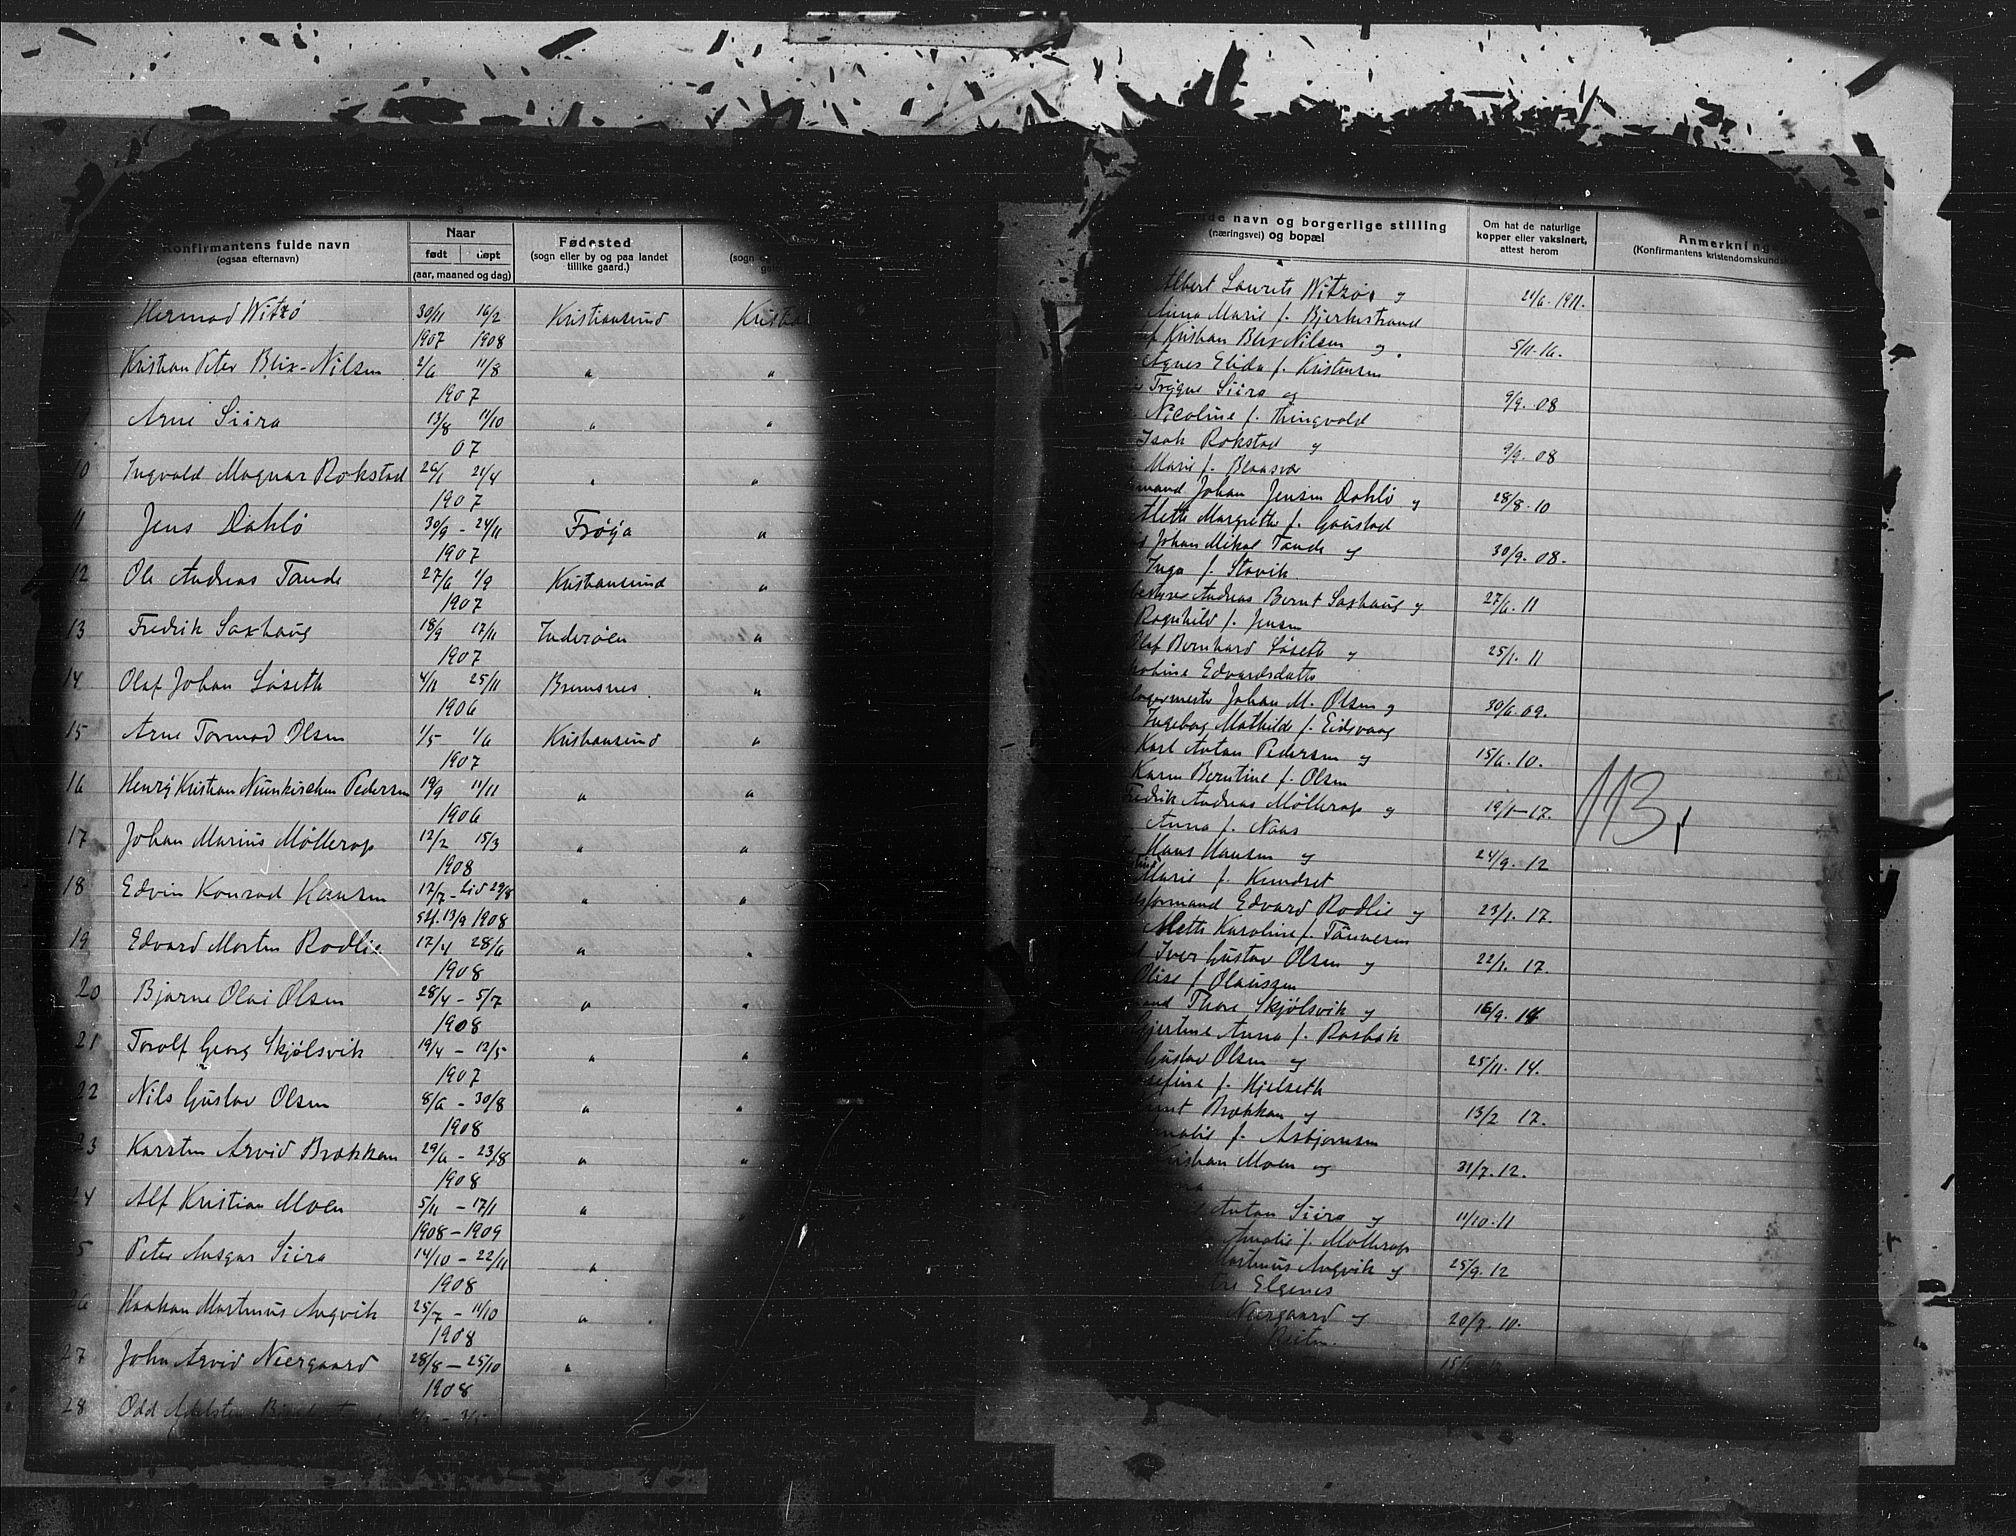 3 4
Konfirmantens fulde navn
(ogsaa efternavn)
Naar
født døpt
(aar, maaned og dag)
Fødested
(sogn eller by og paa landet
tillike gaard.)
(sogn
Hermod Witzø 30/11 16/2 Kristiansund
1907 1908
Kristian Peter Blix-Nilsen 2/6 11/8 "  "
1907
Arne Siira 13/8 11/10 " "
07
10 Ingvald Magnar Rokstad 26/1 21/4 " "
1907
11 Jens Dahlø 30/9 - 24/11 Frøya "
1907
12 Ole Andreas Tande 27/6 1/9 Kristiansund "
1907
13 Fredrik Saxhaug 18/9 17/11 Inderøen "
1907
14 Olaf Johan Løseth 4/11 25/11 Bremsnes "
1906
15 Arne Tormod Olsen 1/5 - 1/6 Kristiansund "
1907
16 Henry Kristian Neunkirchen Pedersen 19/9 11/11 " "
1906
17 Johan Marius Møllerop 12/2 15/3 " "
1908
18 Edvin Konrad Hansen 17/7 - 29/8 " "
13/9 1908
19 Edvard Morten Rodlie 17/4 28/6 " "
1908
20 Bjarne Olai Olsen 28/4 - 5/7 " "
1908
21 Torolf Georg Skjølsvik 19/4 - 12/5 " "
1907
22 Nils Gustav Olsen 8/6 - 30/8 " "
1908
23 Karsten Arvid Brækkan 29/6 - 23/8 " "
1908
24 Alf Kristian Moen 5/11 - 17/1 "
1908 - 1909
5 Peter Ansgar Siira 14/10 - 22/11 "
1908
26 Haakan Martinus Angvik 25/7 - 11/10 "
1908
27 John Arvid Neergaard 28/8 - 25/10 "
1908
28 Odd
navn og borgerlige stilling
(næringsvei) og bopæl
Om hat de naturlige
kopper eller vaksinert,
attest herom
Anmerkninge
(Konfirmantens kristendomskundsk
Albert Laurits Witzøe og 24/6. 1911.
Anna Marie f. Bjerkestrand
Kristian Blix-Nilsen og 5/11. 16.
Agnes Elida f. Kristensen
Trygve Siira og 9/9. 08
Nicoline f. Thingvold
Isak Rokstad og 9/9. 08
Marie f. Blaasvær
Johan Jensen Dahlø og 28/8. 10
Margrethe f. Gaustad
Johan Mikal Tande og 30/9. 08.
Inga f. Stavik
Andreas Bernt Saxhaug og 27/6. 11
Ragnhild f. Jensen
Olaf Bernhard Løseth og 25/1. 11
Edvardsdatter
Johan M. Olsen og 30/6. 09.
Ingeborg Mathilde f. Eidsvaag
Karl Anton Pedersen og 15/6. 10.
Karen Berntine f. Olsen
Fredrik Andreas Møllerop og 19/1-17.
Anna f. Naas
113,
Hans Hansen og 24/9. 12
Marie f. Kundset
Edvard Rodlie og 23/1. 17.
Meth Karoline f. Tønnesen
Iver Gustav Olsen og 22/1. 17.
Olise f. Olaussen
Thore Skjølsvik og 16/9. 14
Anna f. Rosbak
Gustav Olsen og 25/11. 14.
f. Hjelseth
Brækkan og 13/2 17.
f. Asbjørnsen
Kristian Moen og 31/7. 12.
Anton Siira og 11/10. 11
Amalie f. Møllerop
Martinus Angvik og 25/9. 12
Elgenes
Neergaard og 20/7. 10.